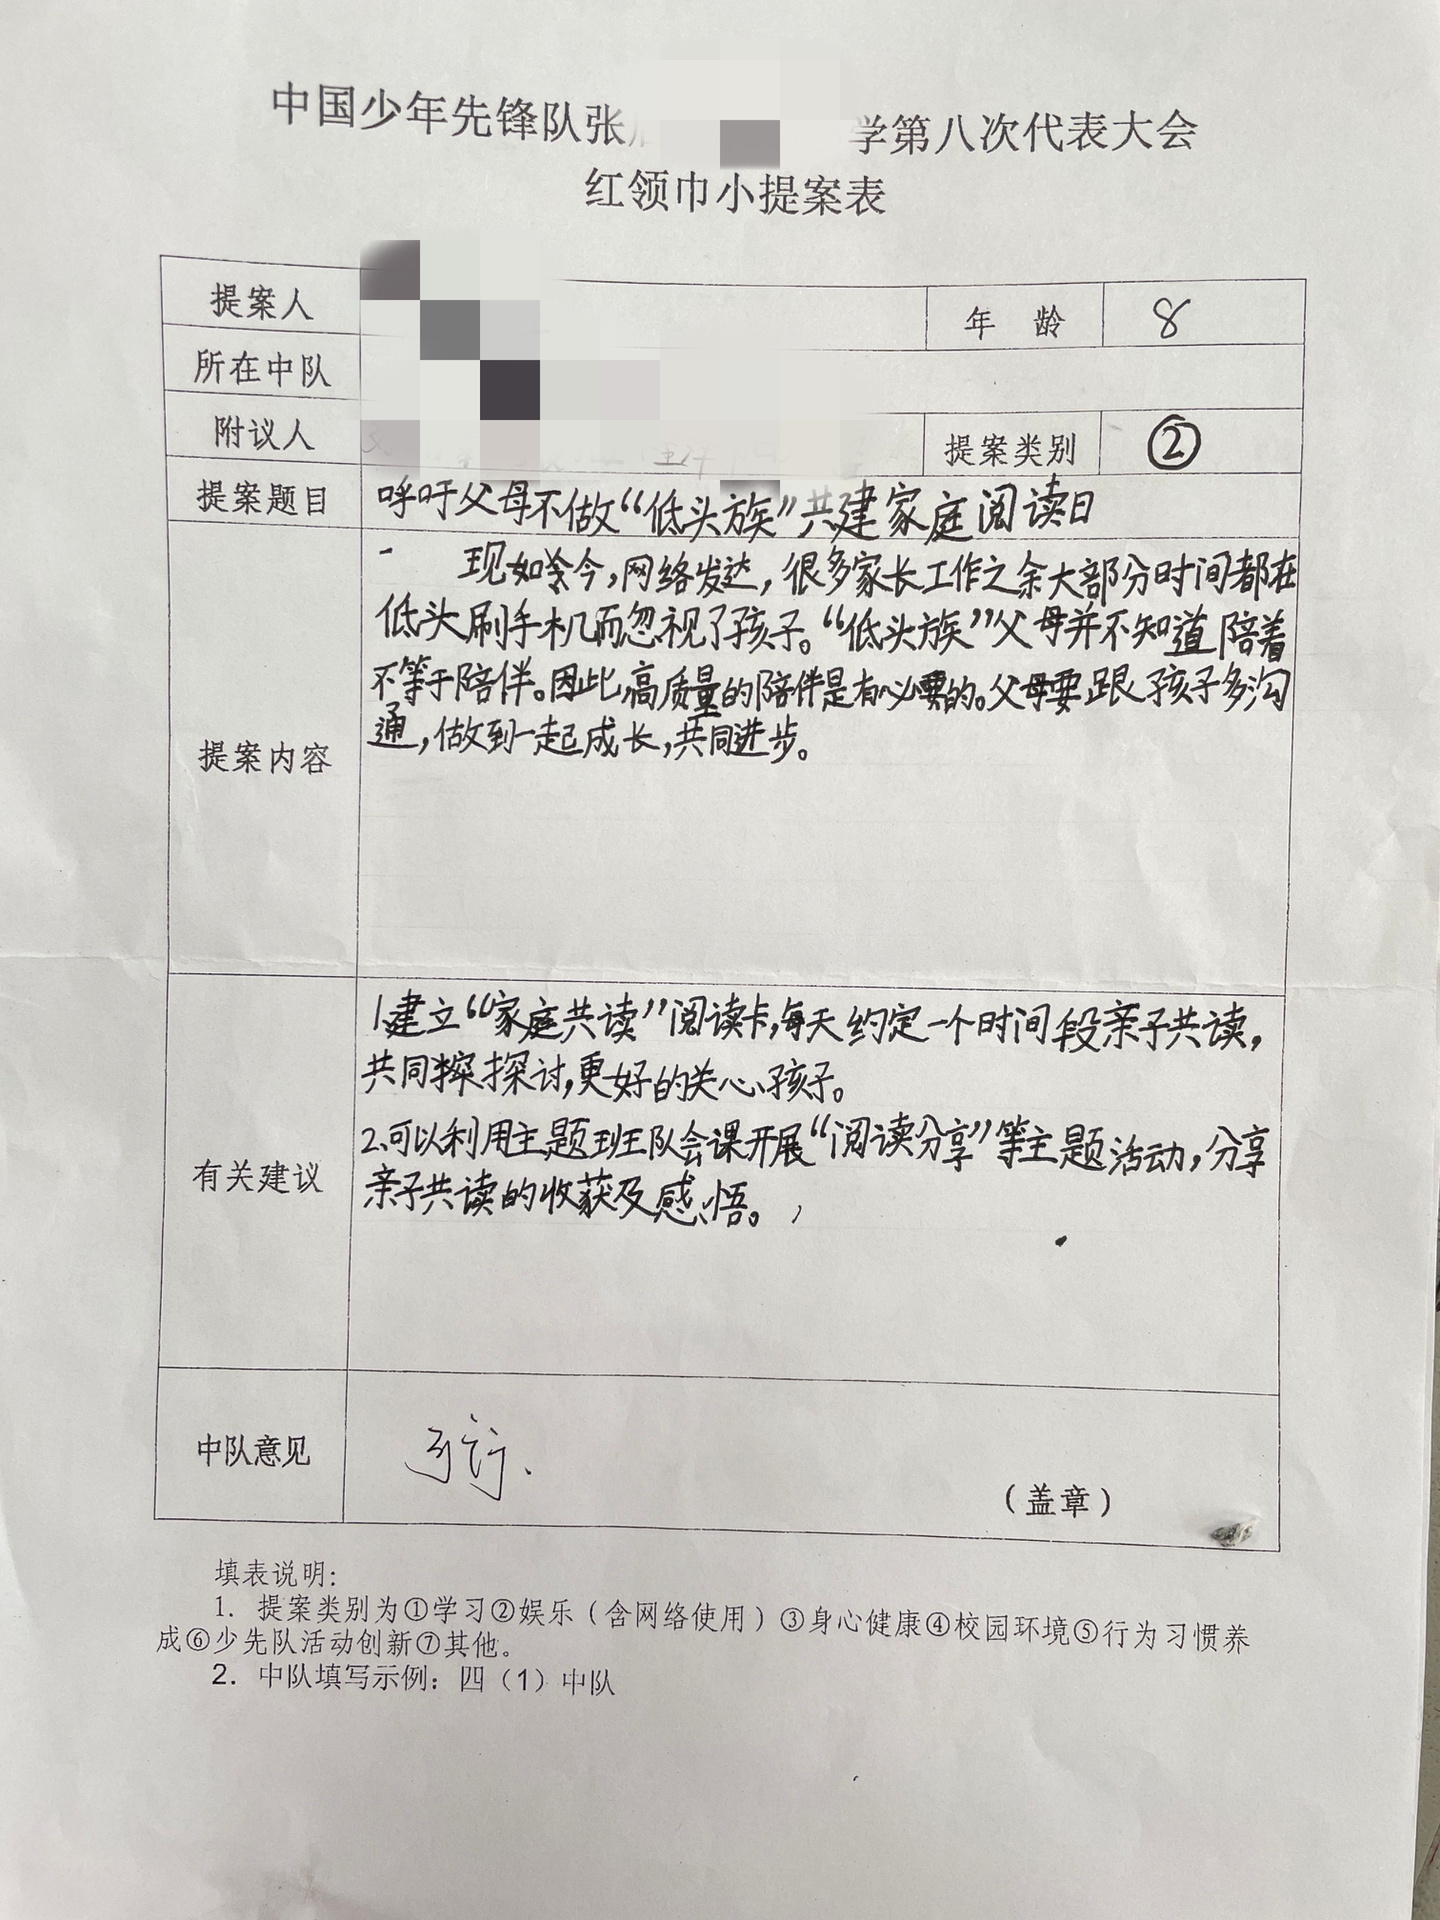 中国少年先锋队张 学第八次代表大会
红领巾小提案表
提案人 年 龄 8
所在中队
附议人 提案类别 ②
提案题目 呼吁父母不做“低头族”共建家庭阅读日
现如今今,网络发达,很多家长工作之余大部分时间都在
低头刷手机而忽视了孩子。“低头族”父母并不知道陪着
不等于陪伴。因此,高质量的陪伴是有必要的。父母要跟孩子多沟
通,做到一起成长,共同进步。
提案内容
1.建立“家庭共读”阅读卡,每天约定一个时间段亲子共读,
共同探探讨,更好的关心孩子。
2.可以利用主题班队会课开展“阅读分享”等主题活动,分享
亲子共读的收获及感悟。
有关建议
中队意见 可行.
(盖章)
填表说明:
1. 提案类别为①学习②娱乐(含网络使用)③身心健康④校园环境⑤行为习惯养
成⑥少先队活动创新⑦其他。
2. 中队填写示例: 四(1)中队